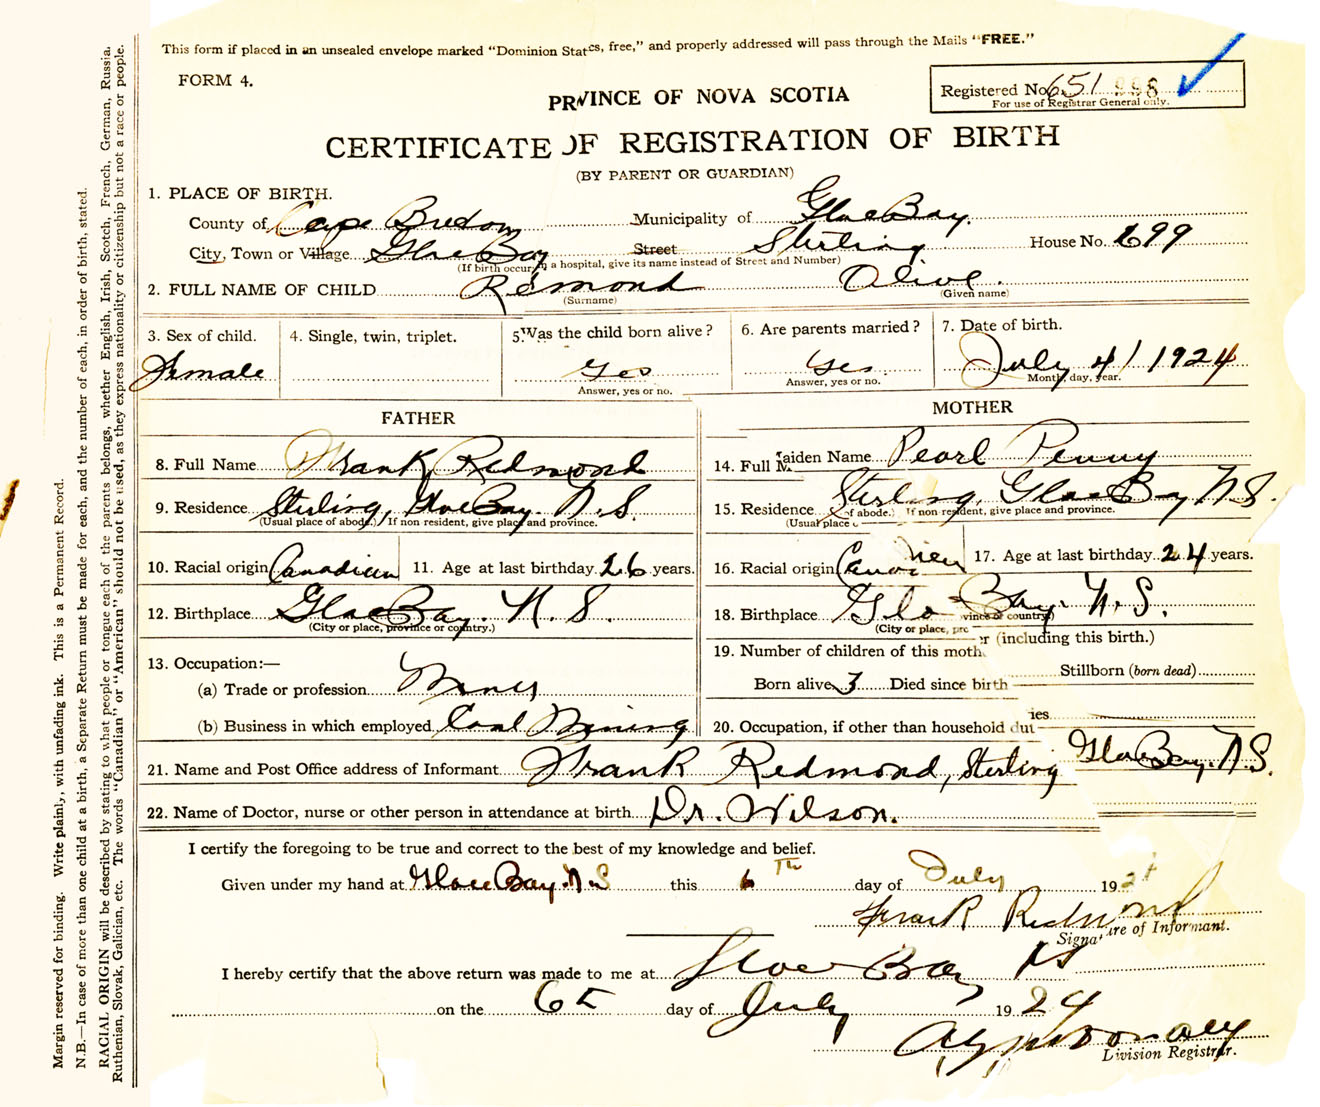 This form if placed in an unsealed envelope marked "Dominion States, free," and properly addressed will pass through the Mails "FREE."
FORM 4.
Registered No. 651 998
For use of Registrar General only.
PROVINCE OF NOVA SCOTIA
CERTIFICATE OF REGISTRATION OF BIRTH
(BY PARENT OR GUARDIAN)
1. PLACE OF BIRTH.
County of Cape Breton Municipality of Glace Bay.
City, Town or Village Glace Bay Street Sterling House No. 699
(If birth occurs in a hospital, give its name instead of Street and Number)
2. FULL NAME OF CHILD Redmond Olive
(Surname) (Given name)
3. Sex of child. 4. Single, twin, triplet. 5. Was the child born alive? 6. Are parents married? 7. Date of birth.
Female Yes Yes July 4/1924
Answer, yes or no. Answer, yes or no. Month, day, year.
FATHER MOTHER
8. Full Name Frank Redmond 14. Full Maiden Name Pearl Penny
9. Residence Sterling, Glace Bay. N.S. 15. Residence Sterling, Glace Bay N.S.
(Usual place of abode.) If non resident, give place and province. (Usual place of abode.) If non-resident, give place and province.
10. Racial origin Canadian 11. Age at last birthday 26 years. 16. Racial origin Canadian 17. Age at last birthday 24 years.
12. Birthplace Glace Bay. N.S. 18. Birthplace Glace Bay. N.S.
(City or place, province or country.) (City or place, province or country)
13. Occupation:— 19. Number of children of this mother (including this birth.)
(a) Trade or profession Miner Born alive 3 Died since birth Stillborn (born dead)
(b) Business in which employed Coal Mining 20. Occupation, if other than household duties
21. Name and Post Office address of Informant Frank Redmond, Sterling Glace Bay. N.S.
22. Name of Doctor, nurse or other person in attendance at birth Dr. Wilson.
I certify the foregoing to be true and correct to the best of my knowledge and belief.
Given under my hand at Glace Bay. N.S this 6th day of July 1924
Frank Redmond
Signature of Informant.
I hereby certify that the above return was made to me at Glace Bay NS
on the 6th day of July 1924
Division Registrar.
Margin reserved for binding. Write plainly, with unfading ink. This is a Permanent Record.
N.B.—In case of more than one child at a birth, a Separate Return must be made for each, and the number of each, in order of birth, stated.
RACIAL ORIGIN will be described by stating to what people or tongue each of the parents belongs, whether English, Irish, Scotch, French, German, Russia.
Ruthenian, Slovak, Galician, etc. The words "Canadian" or "American" should not be used, as they express nationality or citizenship but not a race or people.